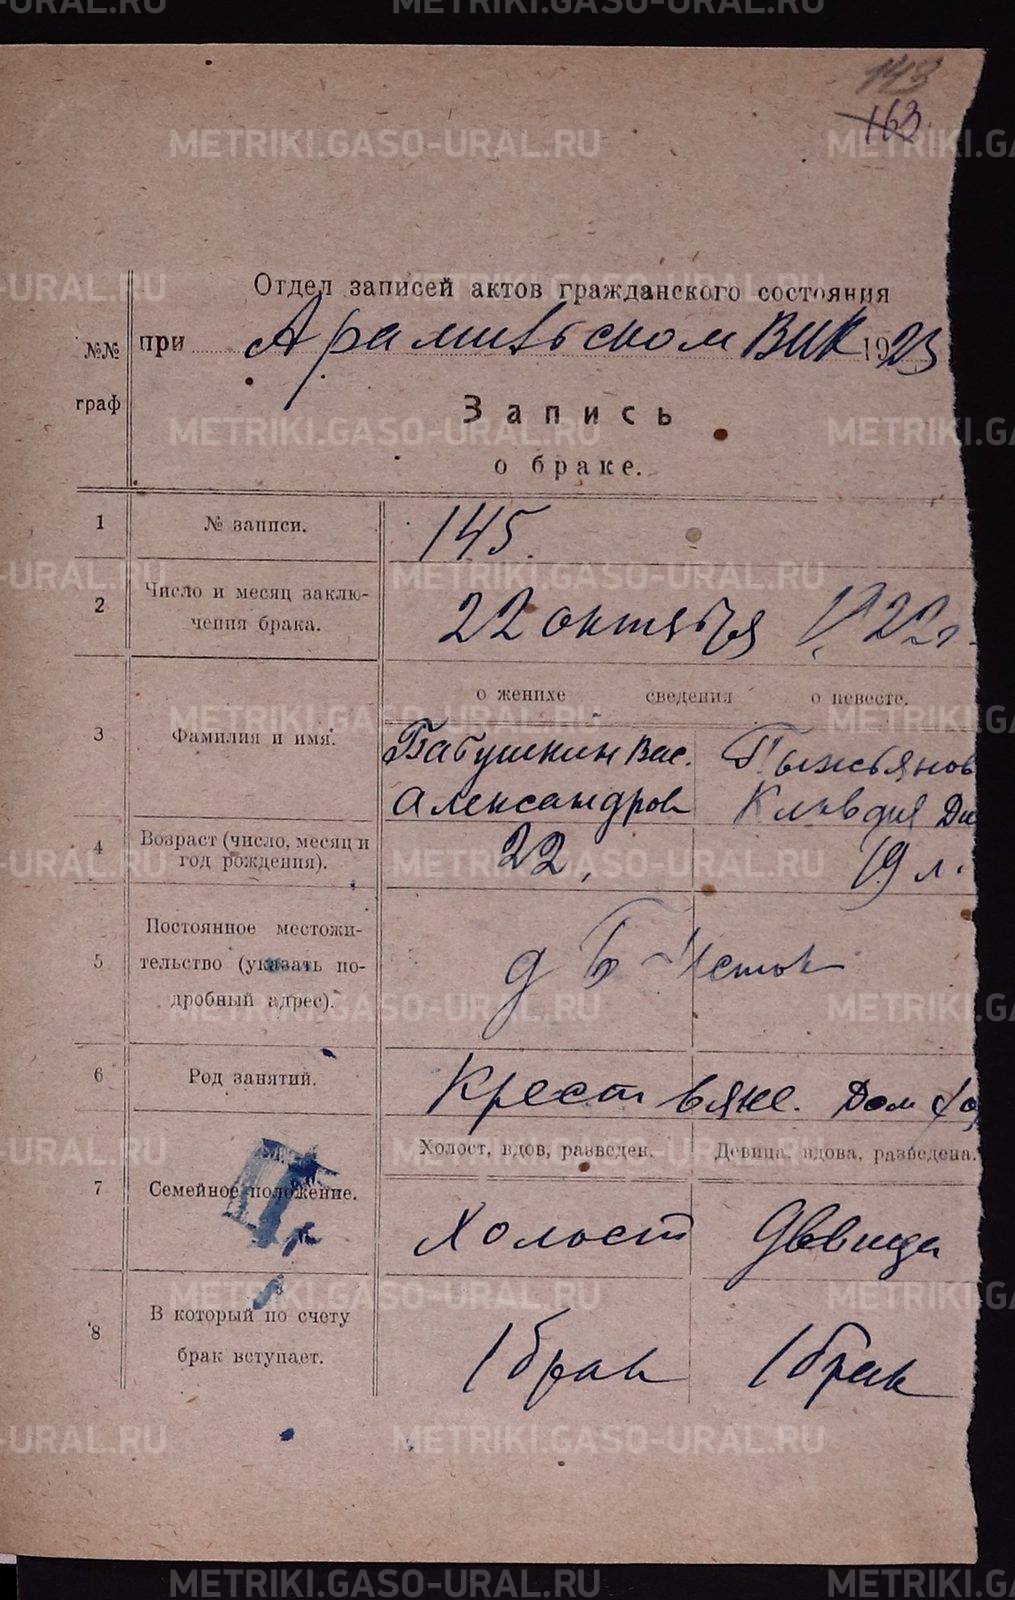 148
163.
Отдел записей актов гражданского состояния
№№ граф
при Арамильском ВИК 1923
Запись
о браке.
1 № записи. 145.
2 Число и месяц заклю-
чения брака. 22 октября 1922 г.
о женихе сведения о невесте.
3 Фамилия и имя. Бабушкин Вас. Пыжьянов
Александров Клавдия Ди
4 Возраст (число, месяц и
год рождения). 22, 19 л.
5 Постоянное местожи-
тельство (указать по-
дробный адрес). д Б-Исток
6 Род занятий. Крестьяне. Дом хо
Холост, вдов, разведен. Девица, вдова, разведена.
7 Семейное положение. Холост Девица
8 В который по счету
брак вступает. 1 брак 1 брак
METRIKI.GASO-URAL.RU